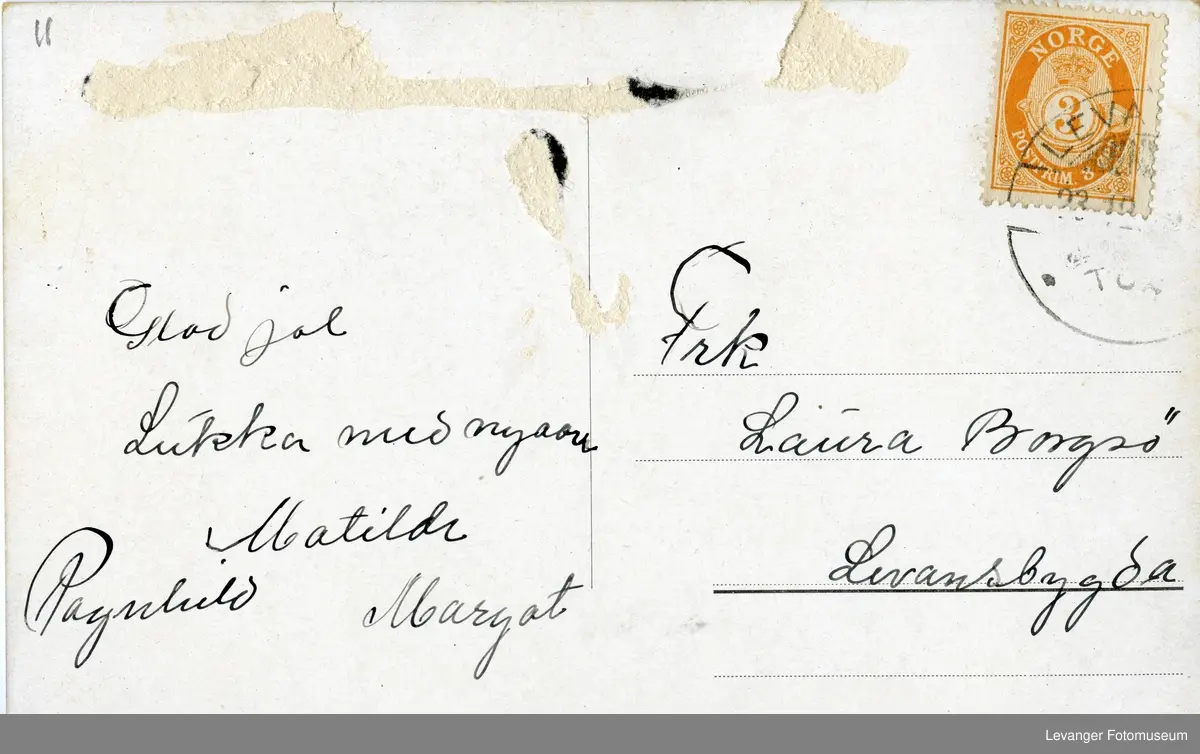 11
NORGE
3
POSTFRIM.
LEV
23
Glad jol
Lukka med nyaar
Matilde
Ragnhild Margot
Frk
Laura Borgsö
Levansbygda
Levanger Fotomuseum